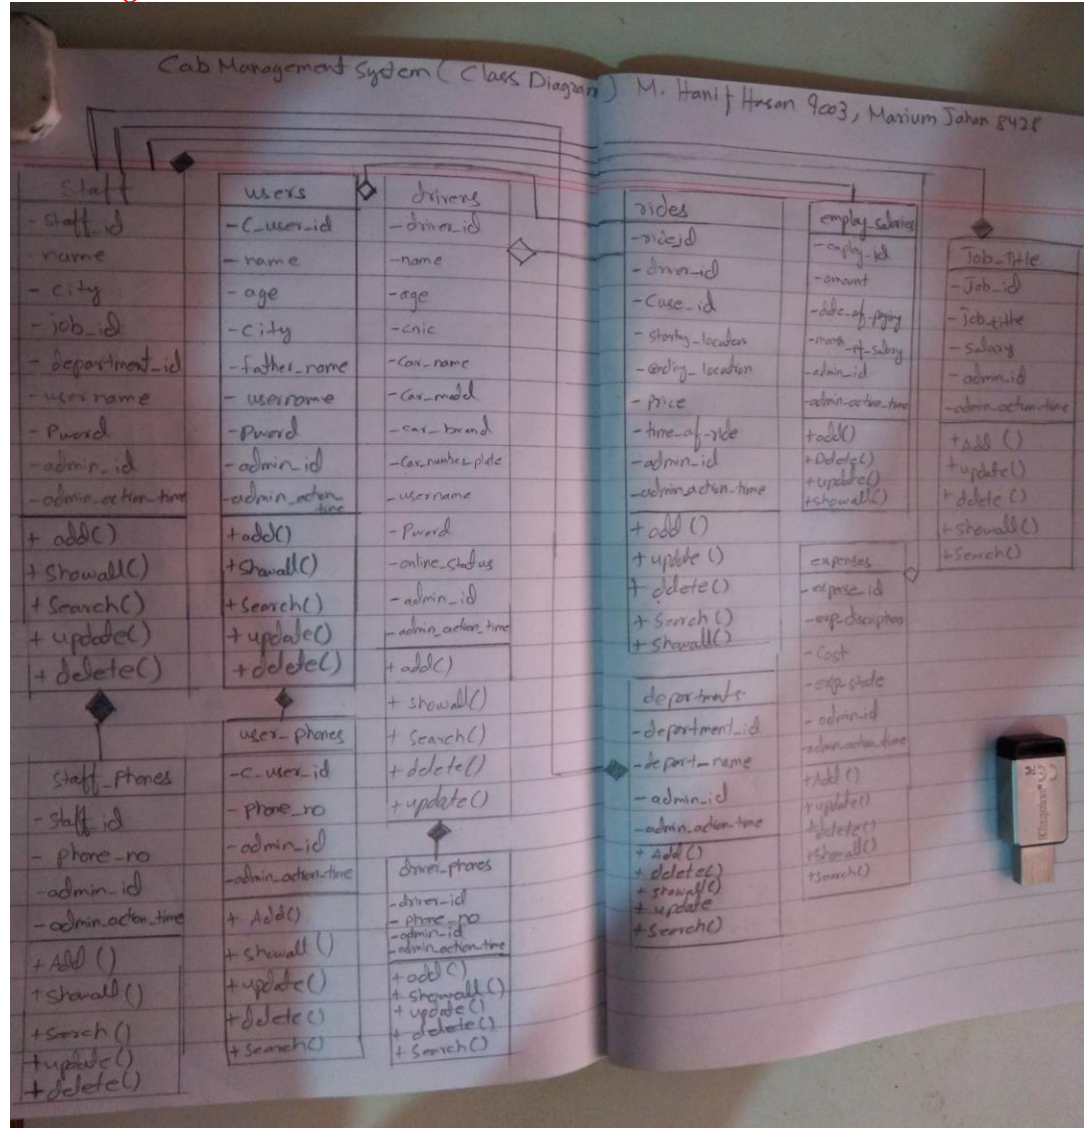 Cab Management System ( Class Diagram ) M. Hanif Hasan 9003, Marium Jahan 8428
Staff
- staff_id
- name
- city
- job_id
- department_id
- username
- Pword
- admin_id
- admin_action_time
+ add()
+ Showall()
+ Search()
+ update()
+ delete()
staff_phones
- staff_id
- phone_no
- admin_id
- admin_action_time
+ Add ()
+ Showall ()
+ Search ()
+ update()
+ delete()
users
- C_user_id
- name
- age
- City
- father_name
- username
- Pword
- admin_id
- admin_action_
time
+ add()
+ Showall()
+ Search()
+ update()
+ delete()
user_phones
- C_user_id
- phone_no
- admin_id
- admin_action_time
+ Add()
+ showall ()
+ update()
+ delete()
+ Search()
drivers
- driver_id
- name
- age
- cnic
- Car_name
- Car_model
- car_brand
- Car_number_plate
- username
- Pword
- online_status
- admin_id
- admin_action_time
+ add()
+ showall()
+ Search()
+ delete()
+ update()
driver_phones
- driver_id
- phone_no
- admin_id
- admin_action_time
+ add()
+ showall()
+ update()
+ delete()
+ Search()
rides
- ride_id
- driver_id
- Cuse_id
- ending_location
- price
- time_of_ride
- admin_id
- admin_action_time
+ add ()
+ update ()
+ delete()
+ Search()
+ Showall()
departments
- department_id
- depart_name
- admin_id
- admin_action_time
+ Add()
+ delete()
+ showall()
+ update
+ Search()
employ_salaries
- employ_id
- amount
- date_of_paying
- month_of_salary
- admin_id
- admin_action_time
+ add()
+ Delete()
+ update()
+ showall()
expenses
- expense_id
- Cost
- admin_id
- admin_action_time
+ Add ()
+ update()
+ delete()
+ Showall()
+ Search()
Job_Title
- Job_id
- job_title
- Salary
- admin_id
- admin_action_time
+ Add ()
+ update()
+ delete ()
+ Showall()
+ Search()
Kingston